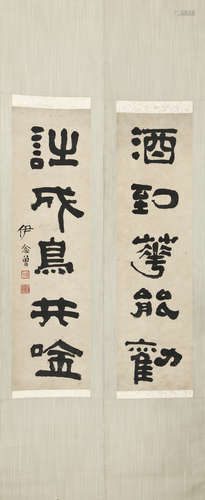 酒到華能勸
詩成鳥共唫
伊念曾